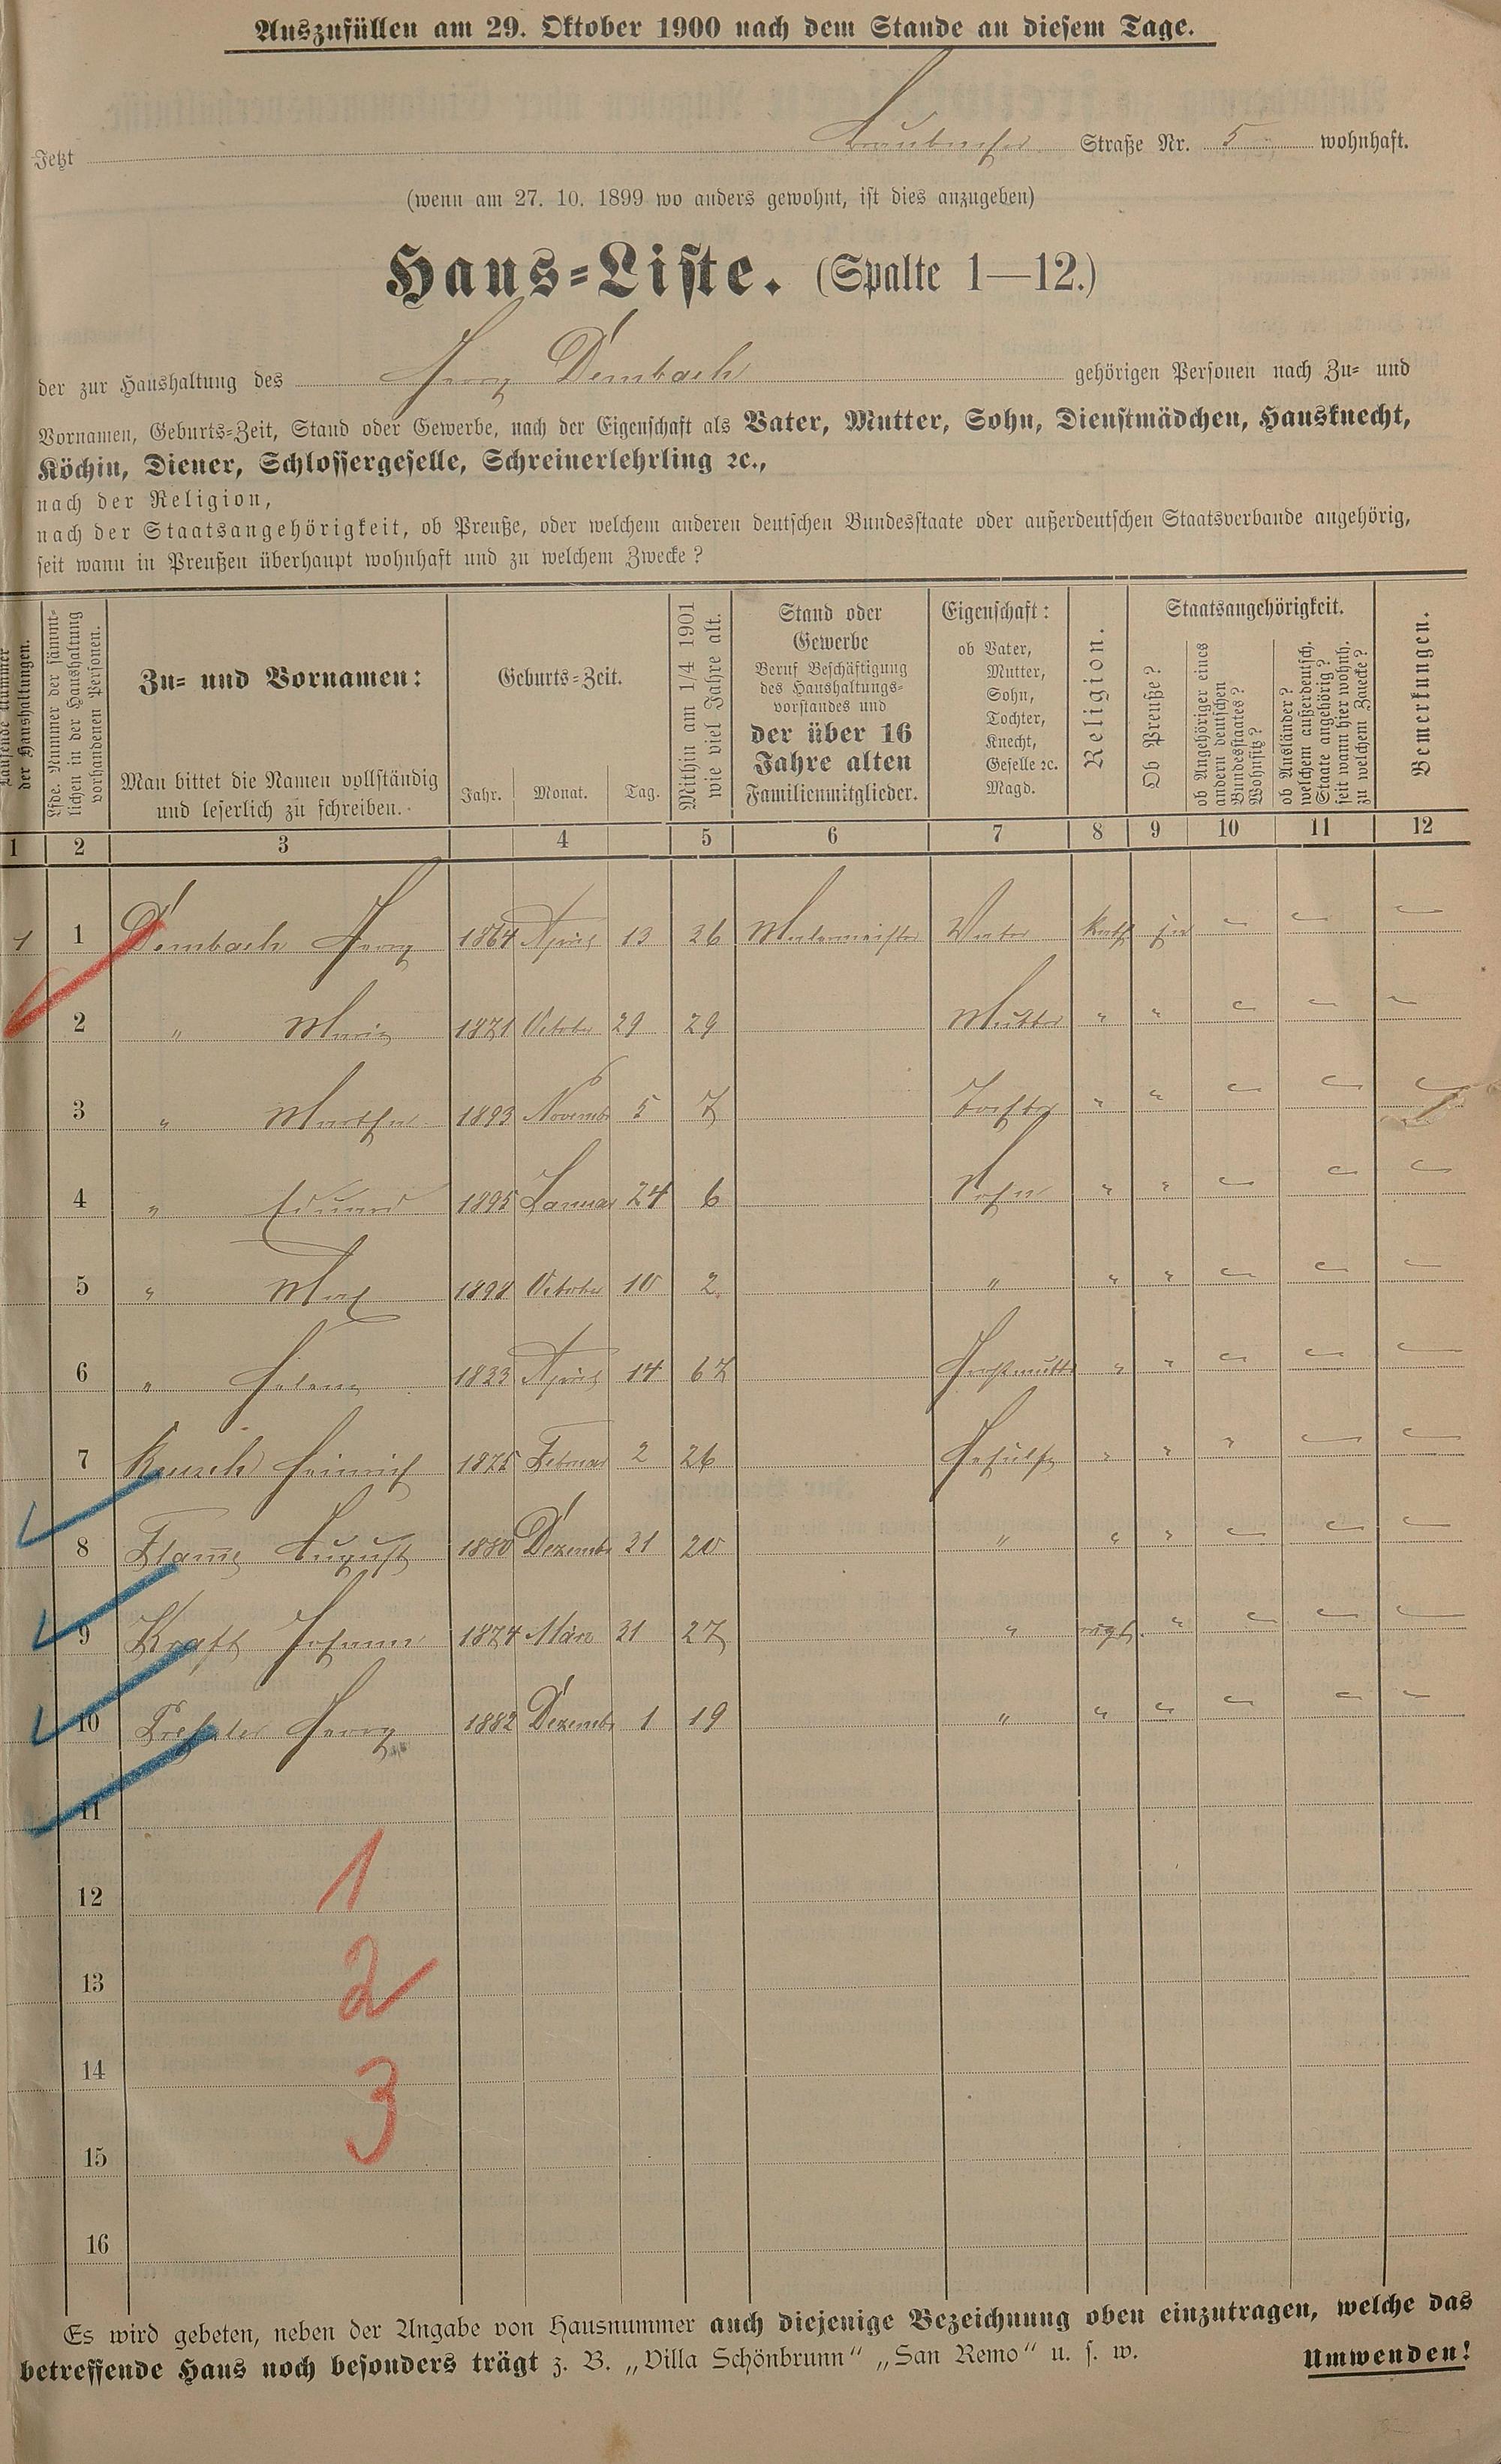 Auszufüllen am 29. Oktober 1900 nach dem Stande an diesem Tage.
Jetzt Straße Nr. 5 wohnhaft.
(wenn am 27. 10. 1899 wo anders gewohnt, ist dies anzugeben)
Haus-Liste. (Spalte 1—12.)
der zur Haushaltung des Georg Dembach gehörigen Personen nach Zu- und
Vornamen, Geburts-Zeit, Stand oder Gewerbe, nach der Eigenschaft als Vater, Mutter, Sohn, Dienstmädchen, Hausknecht,
Köchin, Diener, Schlossergeselle, Schreinerlehrling ꝛc.,
nach der Religion,
nach der Staatsangehörigkeit, ob Preuße, oder welchem anderen deutschen Bundesstaate oder außerdeutschen Staatsverbande angehörig,
seit wann in Preußen überhaupt wohnhaft und zu welchem Zwecke?
Laufende Nummer
der Haushaltungen.
Lfde. Nummer der sämmt-
lichen in der Haushaltung
vorhandenen Personen.
Zu- und Vornamen:
Man bittet die Namen vollständig
und leserlich zu schreiben.
Geburts-Zeit.
Jahr. Monat. Tag.
Mithin am 1/4 1901
wie viel Jahre alt.
Stand oder
Gewerbe
Beruf Beschäftigung
des Haushaltungs-
vorstandes und
der über 16
Jahre alten
Familienmitglieder.
Eigenschaft:
ob Vater,
Mutter,
Sohn,
Tochter,
Knecht,
Geselle ꝛc.
Magd.
Religion.
Staatsangehörigkeit.
Ob Preuße?
ob Angehöriger eines
andern deutschen
Bundesstaates?
Wohnsitz?
ob Ausländer?
welchem außerdeutsch.
Staate angehörig?
seit wann hier wohnh.
zu welchem Zwecke?
Bemerkungen.
1 2 3 4 5 6 7 8 9 10 11 12
1 1 Dembach Georg 1864 April 13 36 Malermeister Vater kath ja — — —
2 " Maria 1871 October 29 29 Mutter " " — — —
3 " Martha 1893 November 5 7 Tochter " " — — —
4 " Eduard 1895 Januar 24 6 Sohn " " — — —
5 " Max 1898 October 10 2 " " " — — —
6 " Helena 1833 April 14 67 Großmutter " " — — —
7 Heinrich 1875 Februar 2 26 Gehülfe " " " — —
8 August 1880 Dezember 21 20 " " " — — —
9 Kraft Johann 1874 März 31 27 " " — — —
10 Georg 1882 Dezember 1 19 " " " — — —
11
12 1
13 2
14
3
15
16
Es wird gebeten, neben der Angabe von Hausnummer auch diejenige Bezeichnung oben einzutragen, welche das
betreffende Haus noch besonders trägt z. B. „Villa Schönbrunn“ „San Remo“ u. s. w. Umwenden!